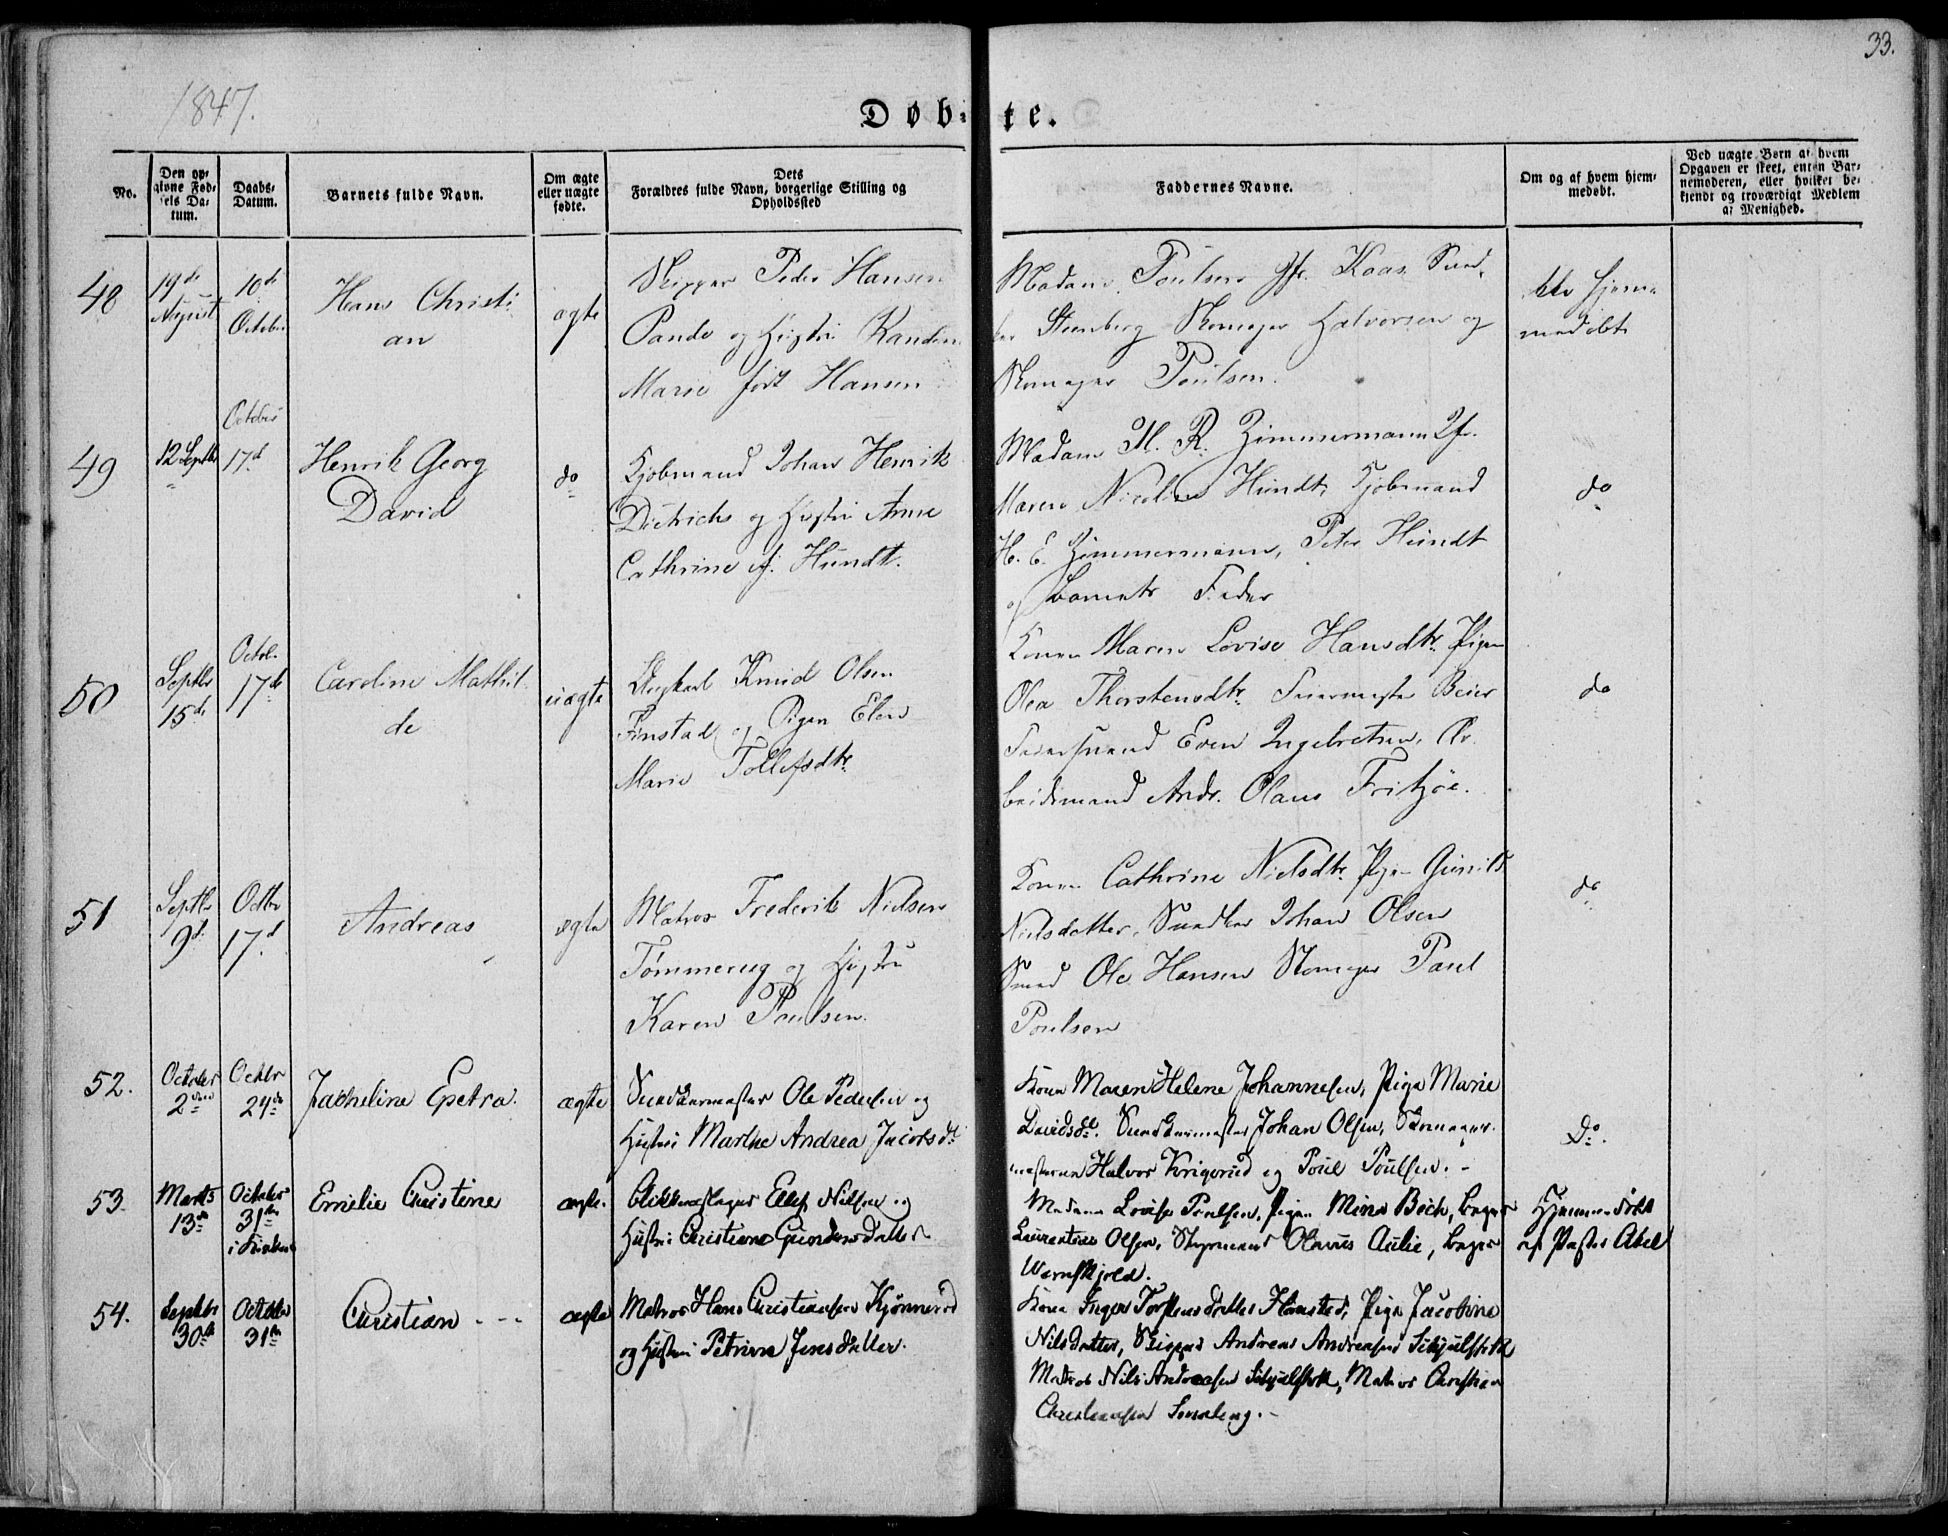 33.
1847.
Døbte.
No.
Den opgivne Fødsels Datum.
Daabs-Datum.
Barnets fulde Navn.
Om ægte eller uægte fødte.
Dets Forældres fulde Navn, borgerlige Stilling og Opholdssted
Faddernes Navne.
Om og af hvem hjemmedøbt.
Ved uægte Børn af hvem Opgaven er skeet, enten Barnemoderen, eller hvilket bekjendt og troværdigt Medlem af Menighed.
48
19de August
10de October
Hans Christian
ægte
Skipper Peder Hansen
og Hustru
Marie født Hansen
Madam Poulsen Jfr. Kaas
Steenberg Skomager Halvorsen og
Skomager Poulsen.
hjemmedøbt
49
12 Septbr
October 17d
Henrik Georg
David
do
Kjøbmand Johan Henrik
Dietrichs og Hustru Anne
Cathrine f. Hundt.
Madam M. R. Zimmermann Jfr.
Maren Nicoline Hundt, Kjøbmand
H. E. Zimmermann, Peter Hundt
og Fader
do
50
Septbr 15de
Octob. 17de
Caroline Mathilde
uægte
Knud Olsen
Finstad og Pigen Elen
Marie Tollefsdtr.
Konen Maren Lovise Hansdtr. Pigen
Olea Thorstensdtr. Beier
Even Ingebretsen, Arbeidsmand
Andr. Olaus Fritzøe.
do
51
Septbr 9d.
Octbr 17d.
Andreas
ægte
Matros Frederik Nielsen
Tømmerug og Hustru
Karen Poulsen.
Konen Cathrine Nielsdtr. Pigen Gunild
Nielsdatter, Johan Olsen
Smed Ole Hansen Skomager Paul
Poulsen
do
52.
October 2den
Octbr 24de
Jatheline Epetra.
ægte
Ole Pedersen og
Hustru Marthe Andrea Jacobsdr.
Kone Maren Helene Johannesen, Pige Marie
Davidsdr. Johan Olsen, Skomager
mesterne Halvor Krigerud og Poul Poulsen.
Do.
53.
Marts 13de
October 31te i Kirken
Emilie Christine
ægte.
Blikkenslager Ellef Nilsen og
Hustru Christiane Gundersdatter
Madame Lovise Poulsen, Pigen Mina Bech, Bager
Laurentius Olsen, Styrmand Olavus Aulie, Bager
Wernskjold.
Hjemmedøbt
af Pastor Abel
54.
Septbr 30te
October 31te
Christian
ægte
Matros Hans Christiansen Kjønnerød
og Hustru Petrine Jensdatter.
Kone Inger Torstensdatter Hansted, Pige Jacobine
Nilsdatter, Skipper Andreas Andreasen
Matros Nils Andreasen Matros Christian
Christiansen